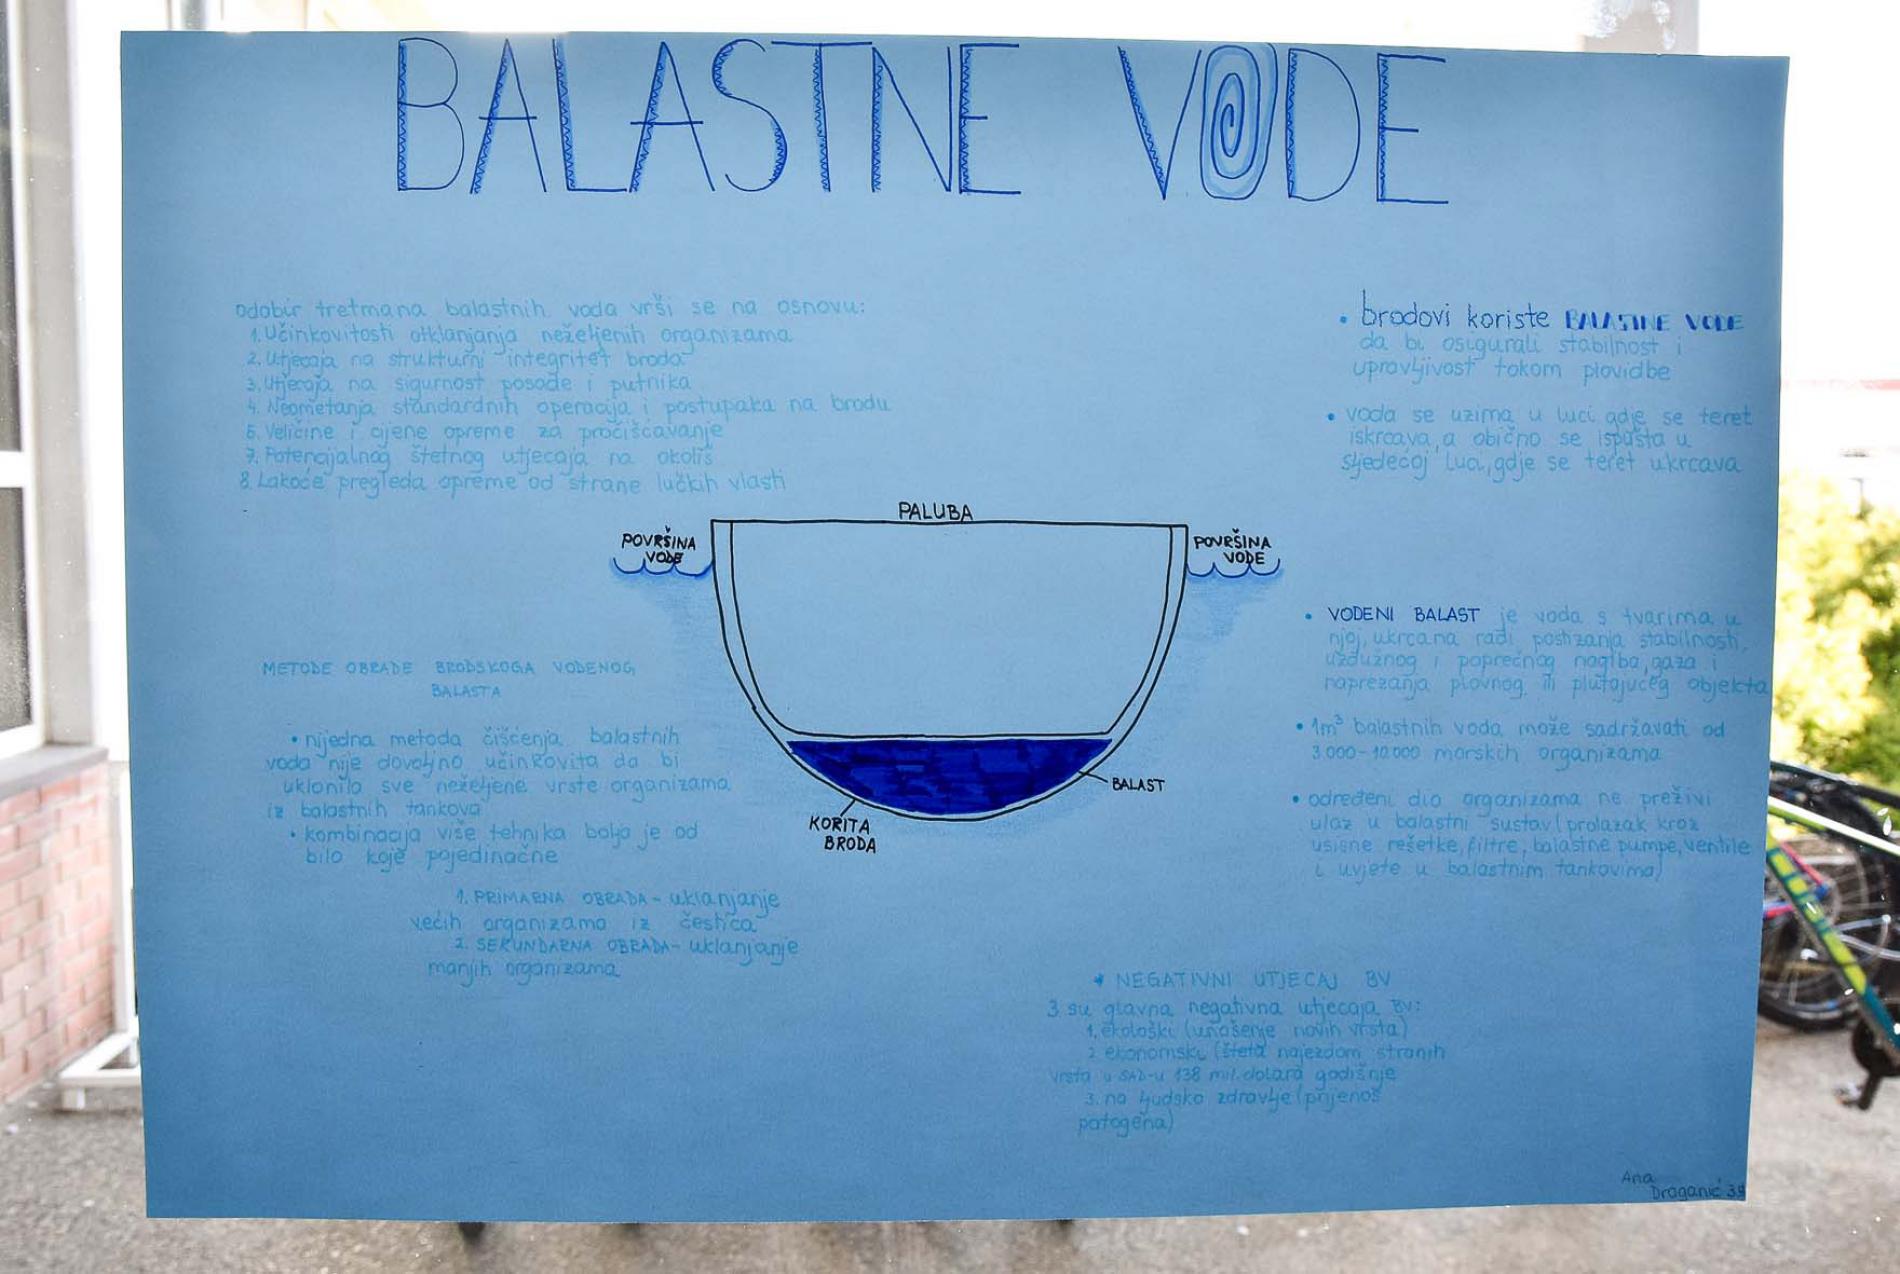 BALASTNE VODE
odabir tretmana balastnih voda vrši se na osnovu:
1. Učinkovitosti otklanjanja neželjenih organizama
2. Utjecaja na strukturni integritet broda
3. Utjecaja na sigurnost posade i putnika
4. Neometanja standardnih operacija i postupaka na brodu
5. Veličine i cijene opreme za pročišćavanje
7. Potencijalnog štetnog utjecaja na okoliš
8. Lakoće pregleda opreme od strane lučkih vlasti
• brodovi koriste BALASTNE VODE
da bi osigurali stabilnost i
upravljivost tokom plovidbe
• voda se uzima u luci gdje se teret
iskrcava, a obično se ispušta u
sljedećoj luci, gdje se teret ukrcava
PALUBA
POVRŠINA
VODE
POVRŠINA
VODE
BALAST
KORITA
BRODA
METODE OBRADE BRODSKOGA VODENOG
BALASTA
• nijedna metoda čišćenja balastnih
voda nije dovoljno učinkovita da bi
uklonila sve neželjene vrste organizama
iz balastnih tankova
• kombinacija više tehnika bolja je od
bilo koje pojedinačne
1. PRIMARNA OBRADA - uklanjanje
većih organizama iz čestica
2. SEKUNDARNA OBRADA - uklanjanje
manjih organizama
• VODENI BALAST je voda s tvarima u
njoj, ukrcana radi postizanja stabilnosti,
uzdužnog i poprečnog nagiba, gaza i
naprezanja plovnog ili plutajućeg objekta
• 1m³ balastnih voda može sadržavati od
3000-10000 morskih organizama
• određeni dio organizama ne preživi
ulaz u balastni sustav (prolazak kroz
usisne rešetke, filtre, balastne pumpe, ventile
i uvjete u balastnim tankovima)
* NEGATIVNI UTJECAJ BV
3 su glavna negativna utjecaja BV:
1. ekološki (unošenje novih vrsta)
2. ekonomski (šteta najezdom stranih
vrsta u SAD-u 138 mil. dolara godišnje
3. na ljudsko zdravlje (prijenos
patogena)
Ana
Draganić 3.g